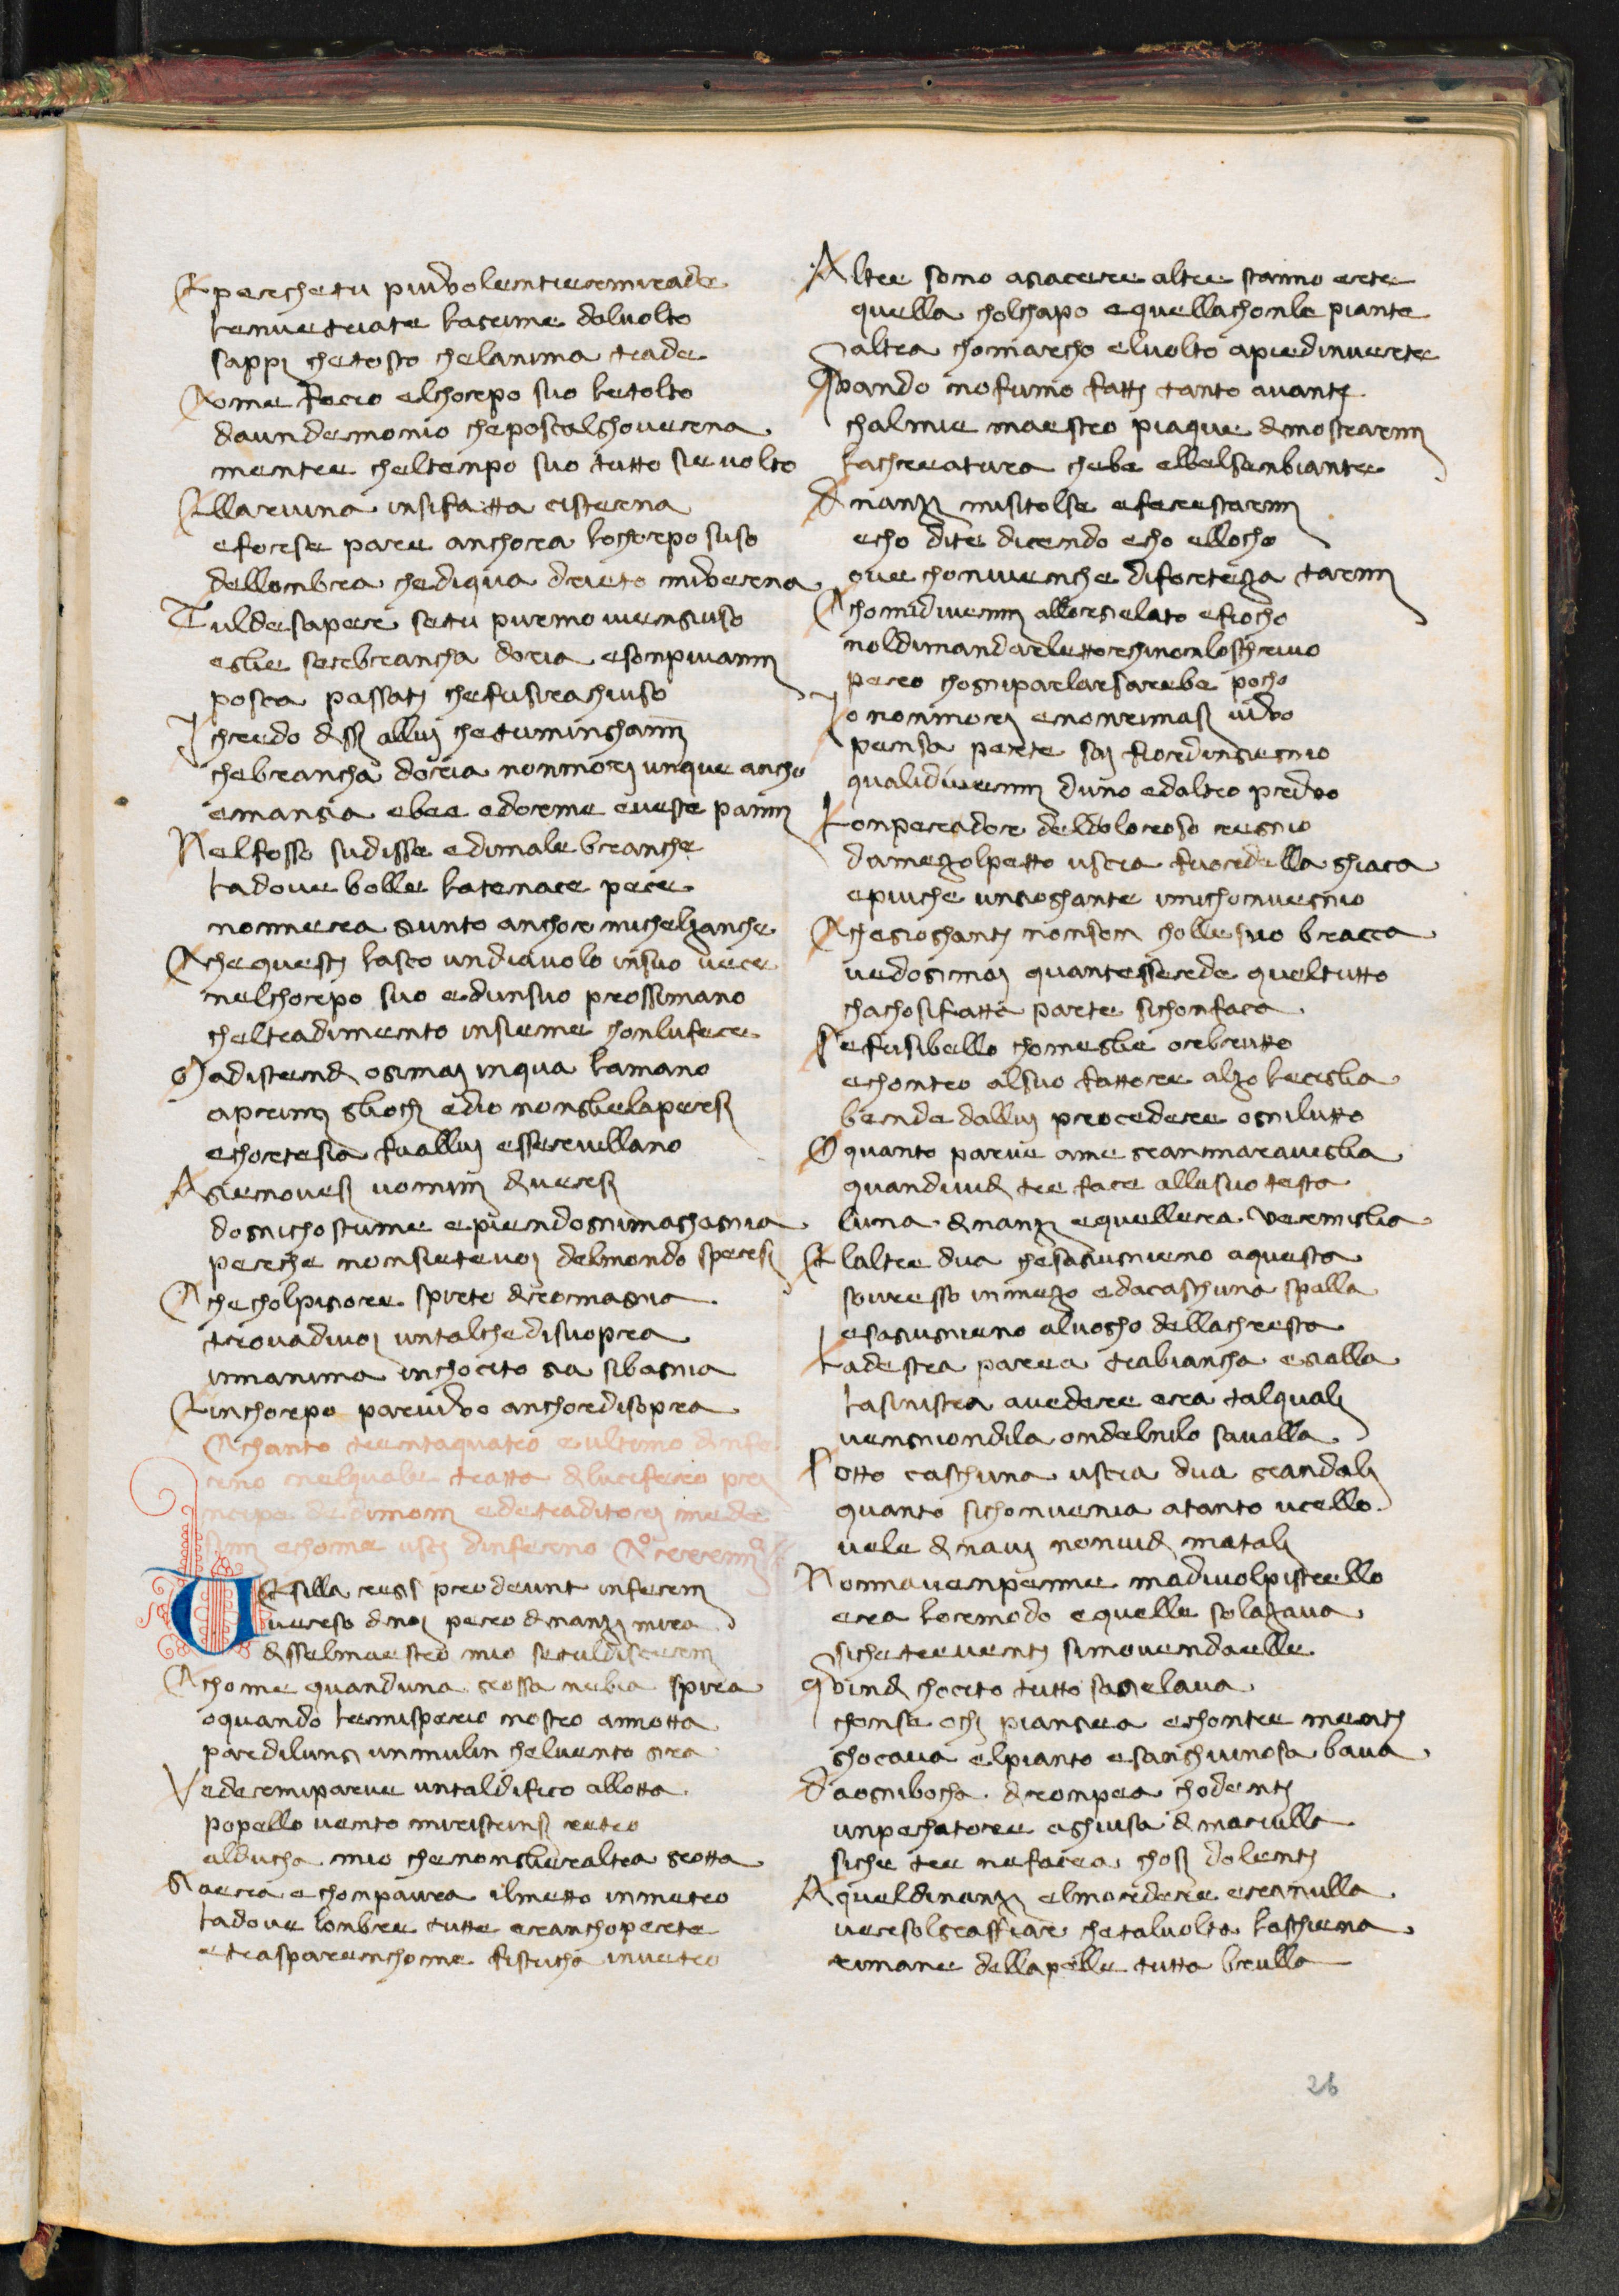 Eperchetu piuvolentiermirade
lenvetriate lagrime dalvolto
sappi chetosto chelanima trade
Come fecio elchorpo suo letolto
daundemonio cheposcialghoverna
mentre cheltenpo suo tutto sievolto
Ellaruina insifatta cisterna
eforse pare anchora lochorpo suso
dellonbra chediqua drieto miverna
Tuldesapere setu purmo viengiuso
eglie serbrancha doria esonpiuanni
poscia passati chefusirachiuso
Ichredo dissi allui chetuminghanni
chebrancha doria nonmori unque ancho
emangia ebee edorme eveste panni
Nelfosso sudisse edimale branche
ladove bolle latenace pece
nonnera giunto anchor michelzanche
Chequesti lascio undiavolo insuo vece
nelchorpo suo edunsuo prossimano
cheltradimento insieme chonlufece
Madistendi ogimai inqua lamano
aprimi gliochi edio nonglielapersi
echortesia fuallui esservillano
Agienovesi uomini diversi
dognichostume epiendognimaghagnia
perche nonsietevoi delmondo spersi
Checholpigiore spirto diromagnia
trovadivoi untalchedisuopra
innanima inchocito gia sibagnia
Einchorpo parvivo anchordisopra
Chanto trentaquatro eultimo dinfe
rno nelquale tratta dilucifero pri
ncipe dedimoni edetraditori mede
simi echome usci dinferno
Vesilla regis prodeunt inferni
verso dinoi pero dinanzi mira
disselmaestro mio setuldiscierni
Chome quanduna grossa nebia spira
oquando lemisperio nostro annotta
pardilungi unmulin chelvento gira
Vedermiparve untaldificio allotta
popello vento miristrinsi retro
alducha mio chenonglieraltra grotta
Giaera echonpaura ilmetto inmetro
ladove lonbre tutte eranchoperte
etrasparienchome festucha invetro
Altre sono agiacere altre stanno erte
quella cholchapo equellachonle piante
altra chomarcho elvolto apiedinverte
Quando nofumo fatti tanto avanti
chalmie maestro piaque dimostrarmi
lachreatura chebe elbelsenbiante
Dinanzi misitolse eferestarmi
echo dite dicendo echo ellocho
ove chonvienche difortezza tarmi
Chomidivenni allorgelato efiocho
noldimandarlettorchinonloschrivo
pero chogniparlarsarebe pocho
Io nonmori enonrimasi vivo
pensa perte sai fiordingiegnio
qualidivenni duno edaltro privo
Lonperadore deldoloroso regnio
damezolpetto uscia fuordella ghiaca
epiuche ungioghante imichonvegnio
Chegioghanti nonson cholle suo bracca
vedogimai quantesserde queltutto
chachosifatta parte sichonfaca
Sefusibello chomeglie orbrutto
echontro alsuo fattore alzo leciglia
bende dallui procedere ognilutto
O quanto parve ame granmaraviglia
quandividi tre face allasuo testa
luna dinanzi equellera vermiglia
Elaltre dua chesagiugnieno aquesta
sovresso inmezo edacaschuna spalla
esagiugnieno alluogho dellachresta
Ladestra parea trabiancha egialla
lasinistra avedere era talquali
vengniondila ondelnilo savalla
Sotto caschuna uscia dua grandali
quanto sichonvenia atanto ucello
vele dinavi nonvidi matali
Nonnavienpenne madivolpistrello
era lormodo equelle solazava
sichetreventi simoviendaelle
Quindi chocito tutto sagielava
chonse ochi piangiea echontre menti
ghocava elpianto esanghuinosa bava
Daognibocha dironpea chodenti
unpechatore aghuisa dimaciulla
siche tre nefacea chosi dolenti
Aqueldinanzi elmordere eranulla
versolgraffiar chetalvolta laschiena
rimane dellapelle tutta brulla
26